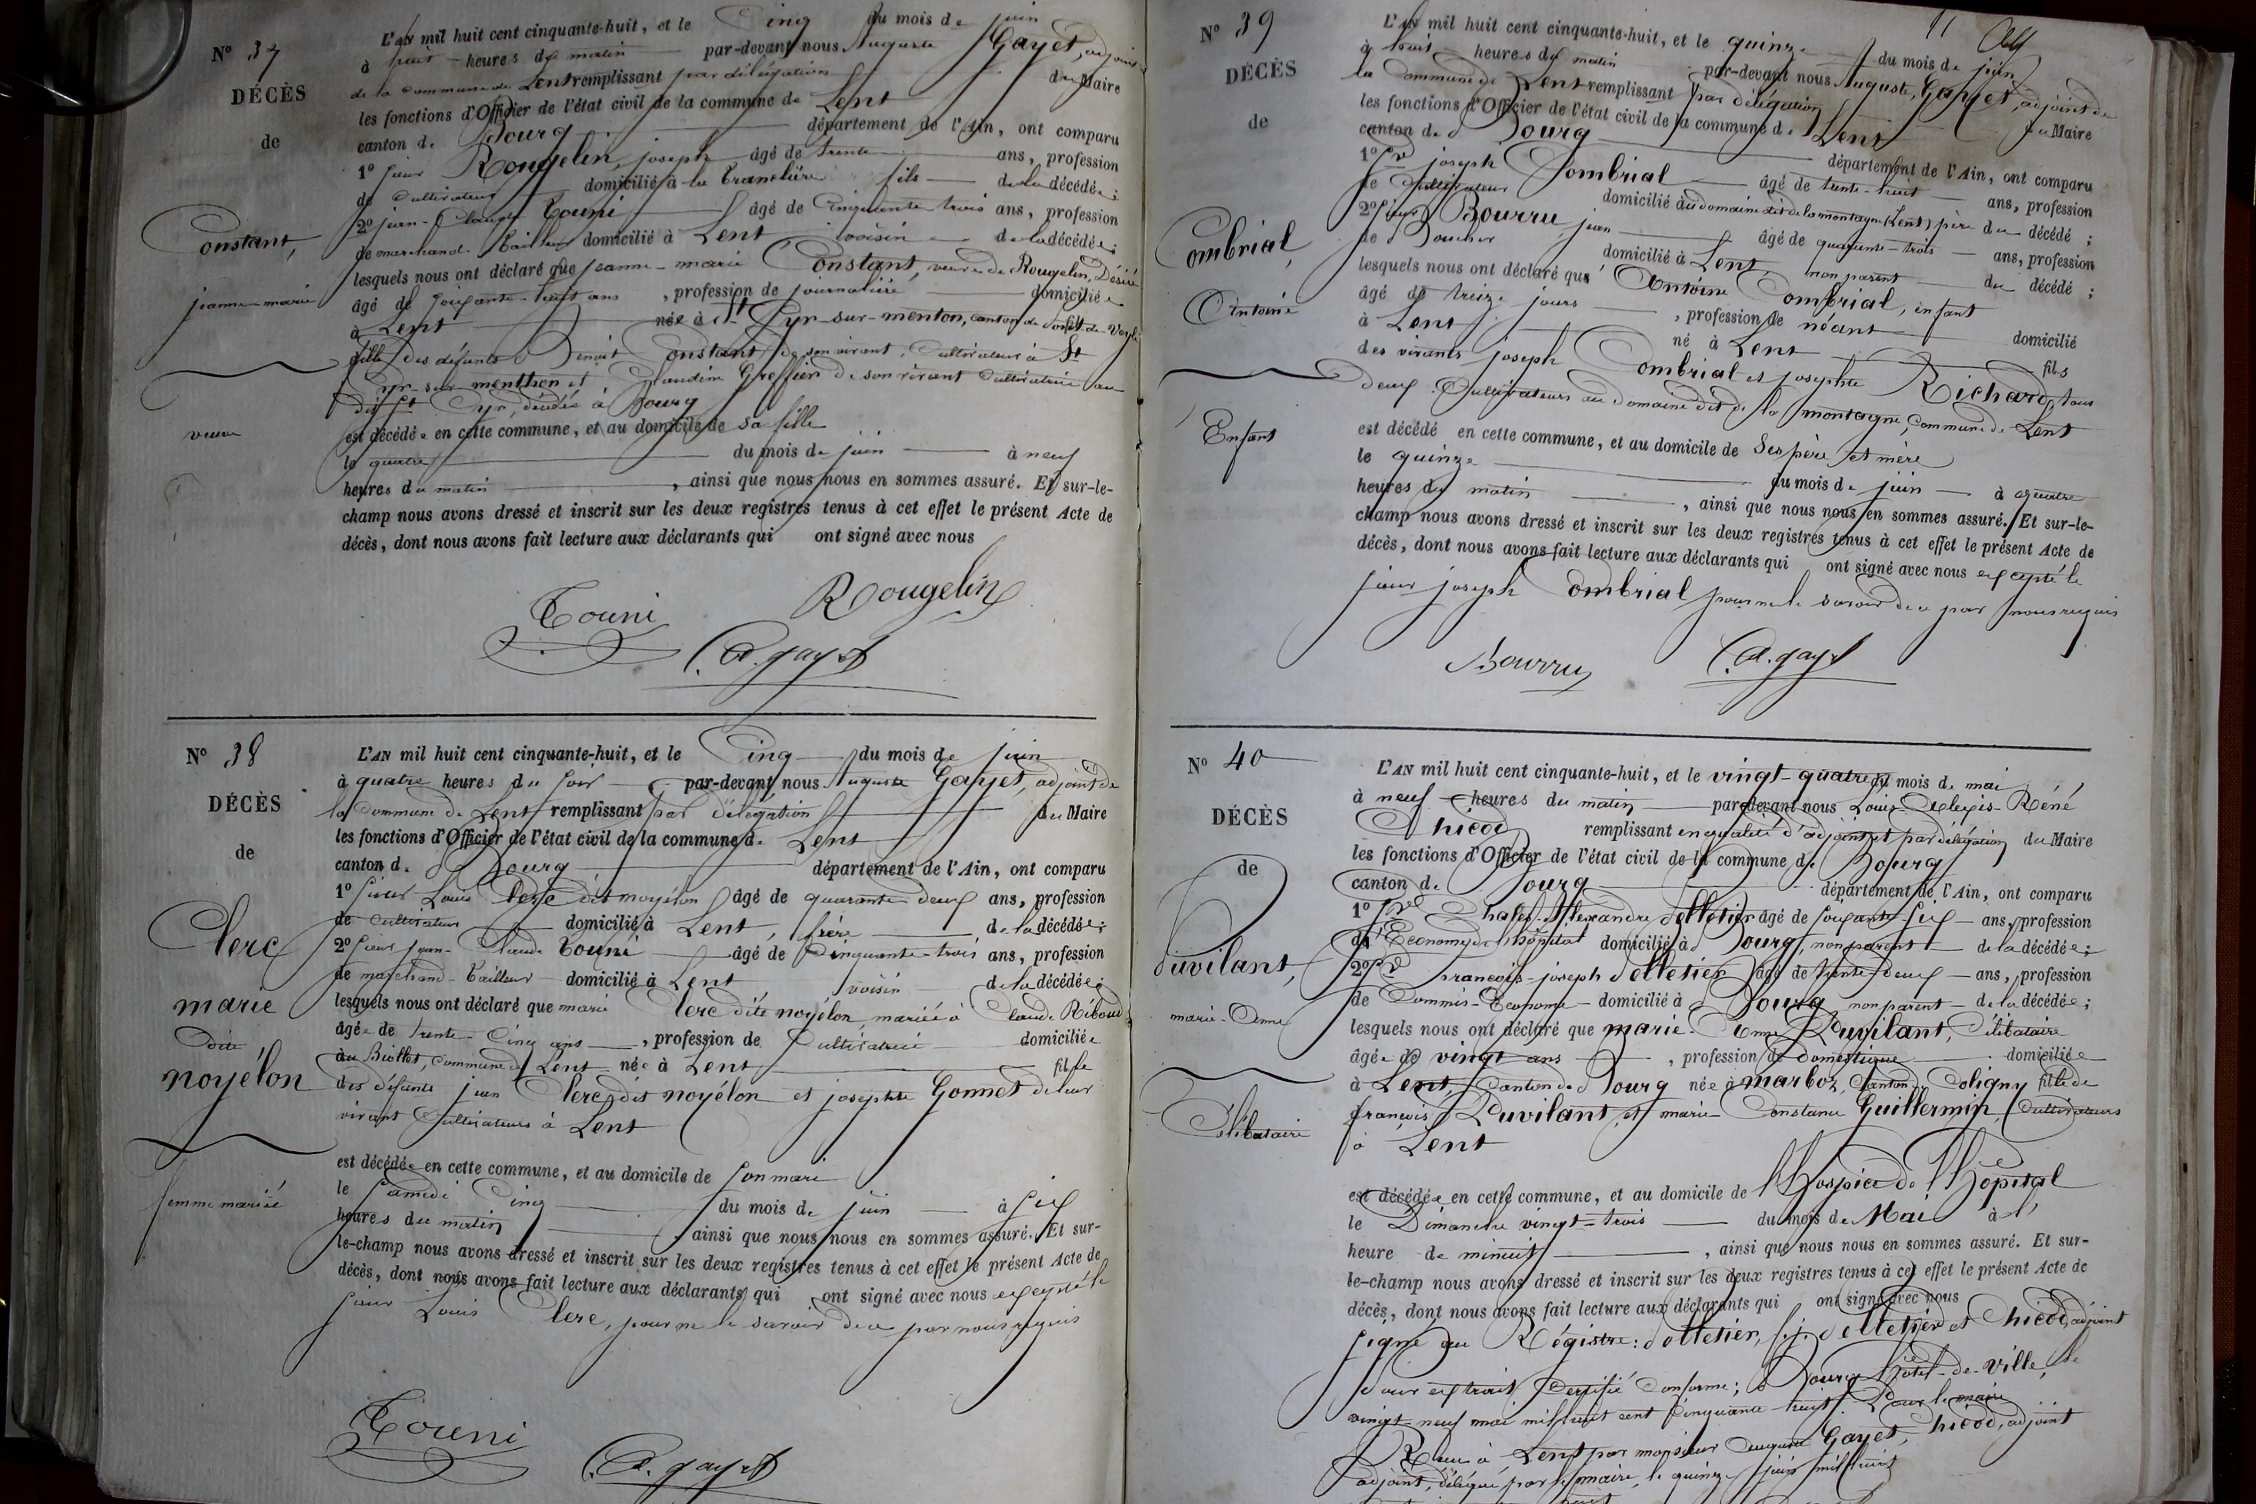 N° 37
DÉCÈS
de
Constant,
jeanne-marie
veuve
L'AN mil huit cent cinquante-huit, et le Cinq du mois de juin
à huit heures du matin par-devant nous Auguste Gayet, adjoint
de la commune de Lent remplissant par délégation du Maire
les fonctions d'Officier de l'état civil de la commune de Lent
canton de Bourg département de l'Ain, ont comparu
1° sieur Rougelin, joseph âgé de trente ans, profession
de Cultivateur domicilié à la tranclière fils de la décédée;
2° jean-Claude Touni âgé de Cinquante trois ans, profession
de marchand-tailleur domicilié à Lent voisin de la décédée;
lesquels nous ont déclaré que jeanne-marie Constant, veuve de Rougelin, Désiré
âgé de soixante-huit ans, profession de journalière domiciliée
à Lent née à St Cyr-sur-menton, canton de Pont-de-Veyle
fille des défunts Benoit Constant de son vivant, Cultivateur à St
Cyr-sur menthon et Claudine Greffier de son vivant Cultivatrice au
dit St Cyr, décédée à Bourg
est décédée en cette commune, et au domicile de sa fille
le quatre du mois de juin à neuf
heures du matin, ainsi que nous nous en sommes assuré. Et sur-le-
champ nous avons dressé et inscrit sur les deux registres tenus à cet effet le présent Acte de
décès, dont nous avons fait lecture aux déclarants qui ont signé avec nous
Touni Rougelin
A. gayet
N° 38
DÉCÈS
de
Clerc
marie
dite
noyélon
femme mariée
L'AN mil huit cent cinquante-huit, et le Cinq du mois de juin
à quatre heures du soir par-devant nous Auguste Gayet, adjoint de
la Commune de Lent remplissant par délégation du Maire
les fonctions d'Officier de l'état civil de la commune de Lent
canton de Bourg département de l'Ain, ont comparu
1° sieur Louis Clerc dit noyélon âgé de quarante deux ans, profession
de Cultivateur domicilié à Lent, frère de la décédée;
2° sieur jean-Claude Touni âgé de Cinquante-trois ans, profession
de marchand-tailleur domicilié à Lent voisin de la décédée;
lesquels nous ont déclaré que marie Clerc dite noyélon mariée à Claude Riboud
âgée de trente-Cinq ans, profession de Cultivatrice domiciliée
au Biollet, commune de Lent née à Lent fille
des défunts jean Clerc dit noyélon et josephte Gonnet de leur
vivant Cultivateurs à Lent
est décédée en cette commune, et au domicile de son mari
le samedi Cinq du mois de juin à six
heures du matin ainsi que nous nous en sommes assuré. Et sur-
le-champ nous avons dressé et inscrit sur les deux registres tenus à cet effet le présent Acte de
décès, dont nous avons fait lecture aux déclarants qui ont signé avec nous excepté le
sieur Louis Clerc, pour ne le savoir de ce par nous requis
Touni
A. gayet
N° 39
DÉCÈS
de
Combrial,
Antoine
Enfant
11
L'AN mil huit cent cinquante-huit, et le quinze du mois de juin
à huit heures du matin par-devant nous Auguste, Gayet, adjoint de
la Commune de Lent remplissant par délégation du Maire
les fonctions d'Officier de l'état civil de la commune de Lent
canton de Bourg département de l'Ain, ont comparu
1° Sr joseph Combrial âgé de trente-huit ans, profession
de Cultivateur domicilié au domaine dit de la montagne (Lent) père du décédé;
2° sieur Bourru jean âgé de quarante-trois ans, profession
de Boucher domicilié à Lent, non parent du décédé;
lesquels nous ont déclaré que Antoine Combrial, enfant
âgé de treize jours, profession de néant domicilié
à Lent né à Lent fils
des vivants joseph Combrial et josephte Richard, tous
deux Cultivateurs au domaine dit de la montagne, Commune de Lent
est décédé en cette commune, et au domicile de Ses père et mère
le quinze du mois de juin à quatre
heures du matin, ainsi que nous nous en sommes assuré. Et sur-le-
champ nous avons dressé et inscrit sur les deux registres tenus à cet effet le présent Acte de
décès, dont nous avons fait lecture aux déclarants qui ont signé avec nous excepté le
sieur joseph Combrial pour ne le savoir de ce par nous requis
Bourru A. gayet
N° 40
DÉCÈS
de
Duvilant,
marie-Anne
Célibataire
L'AN mil huit cent cinquante-huit, et le vingt-quatre du mois de mai
à neuf heures du matin par-devant nous Louis-Alexis-Réné
Chicod remplissant en qualité d'adjoint et par délégation du Maire
les fonctions d'Officier de l'état civil de la commune de Bourg
canton de Bourg département de l'Ain, ont comparu
1° Sr Charles-Alexandre Pelletier âgé de soixante-six ans, profession
de Econome de l'hôpital domicilié à Bourg, non parent de la décédée;
2° Sr François-joseph Pelletier âgé de trente-deux ans, profession
de Commis-Econome domicilié à Bourg non parent de la décédée;
lesquels nous ont déclaré que marie-Anne Duvilant, Célibataire
âgée de vingt ans, profession de domestique domiciliée
à Lent, Canton de Bourg née à marboz, Canton de Coligny fille de
françois Duvilant, et marie-Constance Guillermin, Cultivateurs
à Lent
est décédée en cette commune, et au domicile de l'hospice de l'hôpital
le Dimanche vingt-trois du mois de Mai à l'
heure de minuit, ainsi que nous nous en sommes assuré. Et sur-
le-champ nous avons dressé et inscrit sur les deux registres tenus à cet effet le présent Acte de
décès, dont nous avons fait lecture aux déclarants qui ont signé avec nous
signé au Régistre: Pelletier, f. j. Pelletier et Chicod, adjoint
Pour extrait Certifié Conforme; à Bourg hôtel-de-ville, le
vingt-neuf mai mil huit cent Cinquante-huit. Pour le maire
Chicod, adjoint
Reçu à Lent par monsieur Auguste Gayet,
adjoint, délégué par le maire, le quinze juin mil huit